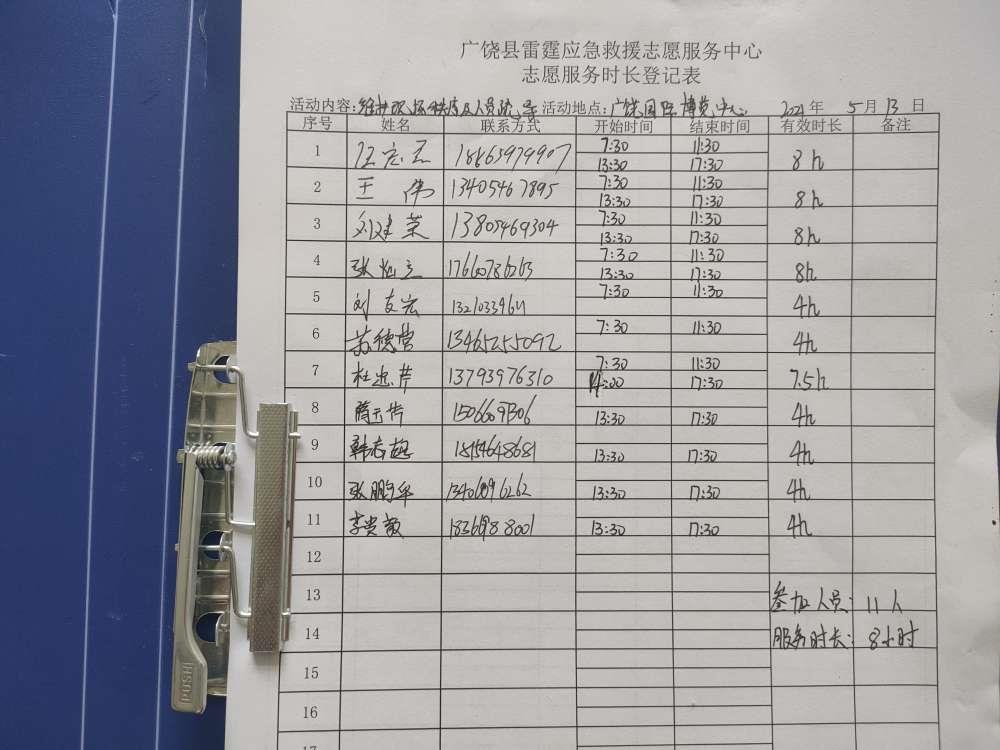 广饶县雷霆应急救援志愿服务中心
志愿服务时长登记表
活动内容:维护现场秩序及人员疏导 活动地点:广饶国际博览中心 2021年 5月 13日
序号 姓名 联系方式 开始时间 结束时间 有效时长 备注
1 7:30 11:30 8h
13:30 17:30
2 王伟 13405467895 7:30 11:30 8h
13:30 17:30
3 刘建荣 13805469304 7:30 11:30 8h
13:30 17:30
4 17660786263 7:30 11:30 8h
13:30 17:30
5 刘友宏 7:30 11:30 4h
6 苏德营 13465255092 7:30 11:30 4h
7 杜忠芹 13793976310 7:30 11:30 7.5h
14:00 17:30
8 13:30 17:30 4h
9 韩志超 18154648681 13:30 17:30 4h
10 张鹏华 13:30 17:30 4h
11 李贵敏 13:30 17:30 4h
12
13 参加人员:11人
14 服务时长:8小时
15
16
17
PUSH